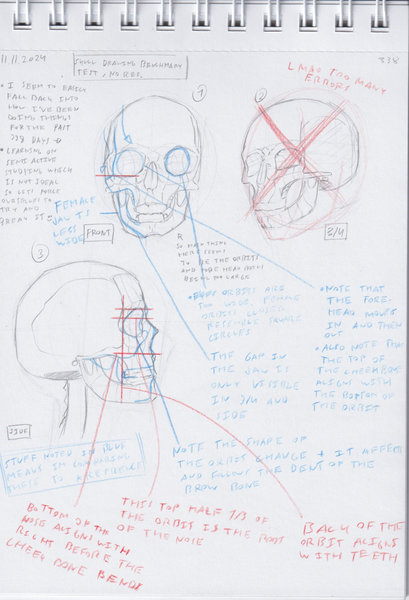 11/11/2024
SKULL DRAWING BENCHMARK
TEST, NO REF.
338
LMAO TOO MANY
ERRORS
• I SEEM TO EASILY
FALL BACK INTO
HOW I'VE BEEN
DOING THINGS
FOR THE PAST
338 DAYS →
• LEARNING ON
SEMI ACTIVE
STUDYING WHICH
IS NOT IDEAL
SO LETS FORCE
OURSELVES TO
TRY AND
BREAK IT
1
2
FEMALE
JAW IS
LESS
WIDE
FRONT
SO MAIN THING
HERE SEEMS
TO BE THE ORBITS
AND FORE HEAD
BEING TOO LARGE
3/4
3
• ORBITS ARE
TOO WIDE. FEMALE
ORBITS CLOSELY
RESEMBLE
CIRCLES
• NOTE THAT
THE FORE-
HEAD MOVES
IN AND THEN
OUT
• ALSO NOTE THAT
THE TOP OF
THE CHEEKBONE
ALIGNS WITH
THE BOTTOM OF
THE ORBIT
THE GAP IN
THE JAW IS
ONLY VISIBLE
IN 3/4 AND
SIDE
SIDE
STUFF NOTED IN BLUE
MEANS IM COMPARING
THESE TO A REFERENCE
NOTE THE SHAPE OF
THE ORBIT CHANGE + IT AFFECT
AND FLOWS THE DENT OF THE
BROW BONE
BOTTOM OF THE
NOSE ALIGNS WITH
RIGHT BEFORE THE
CHEEK BONE BENDS
THIS TOP HALF 1/3 OF
THE ORBIT IS THE ROOT
OF THE NOSE
BACK OF THE
ORBIT ALIGNS
WITH TEETH